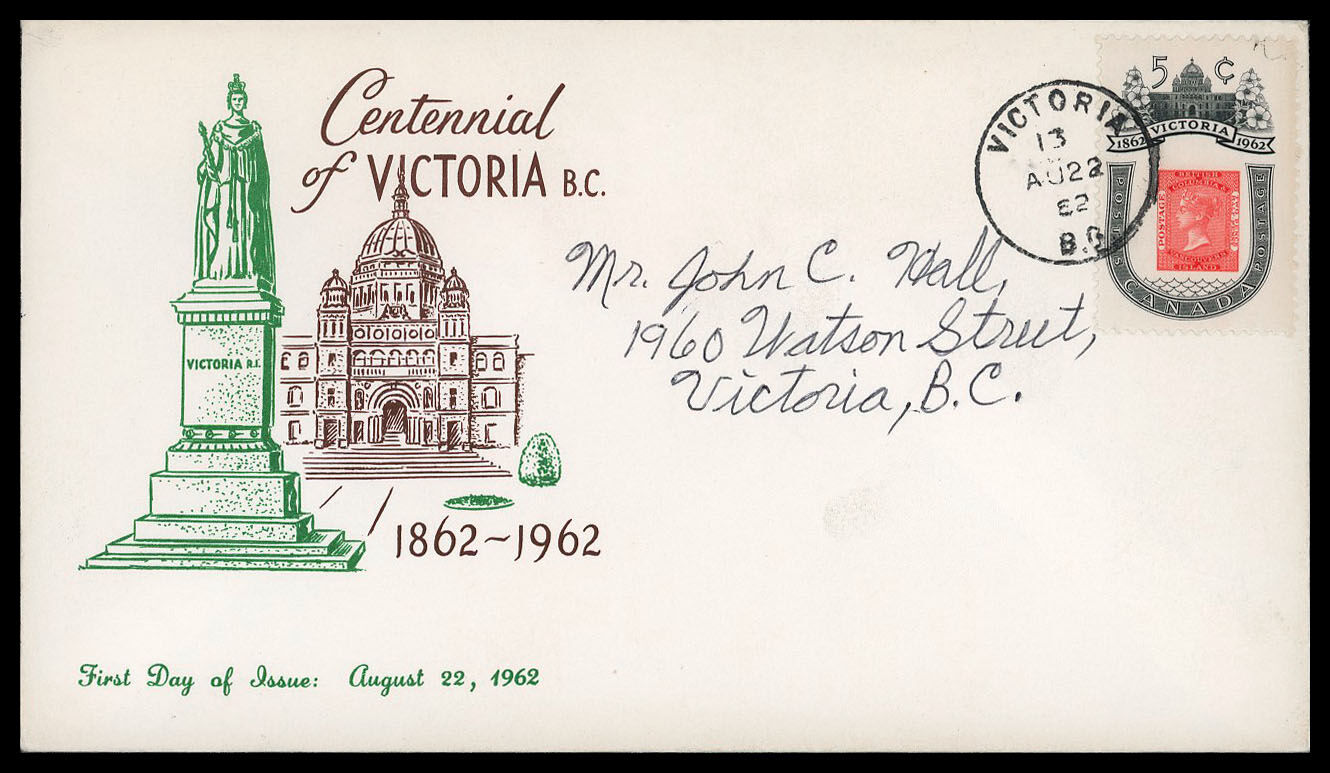 Centennial
of VICTORIA B.C.
VICTORIA R.I.
1862~1962
First Day of Issue: August 22, 1962
VICTORIA
13
AU 22
62
B.C.
5¢
VICTORIA
1862 1962
POSTES CANADA POSTAGE
BRITISH
COLUMBIA &
POSTAGE
VANCOUVERS
ISLAND
Mr. John C. Hall,
1960 Watson Street,
Victoria, B.C.